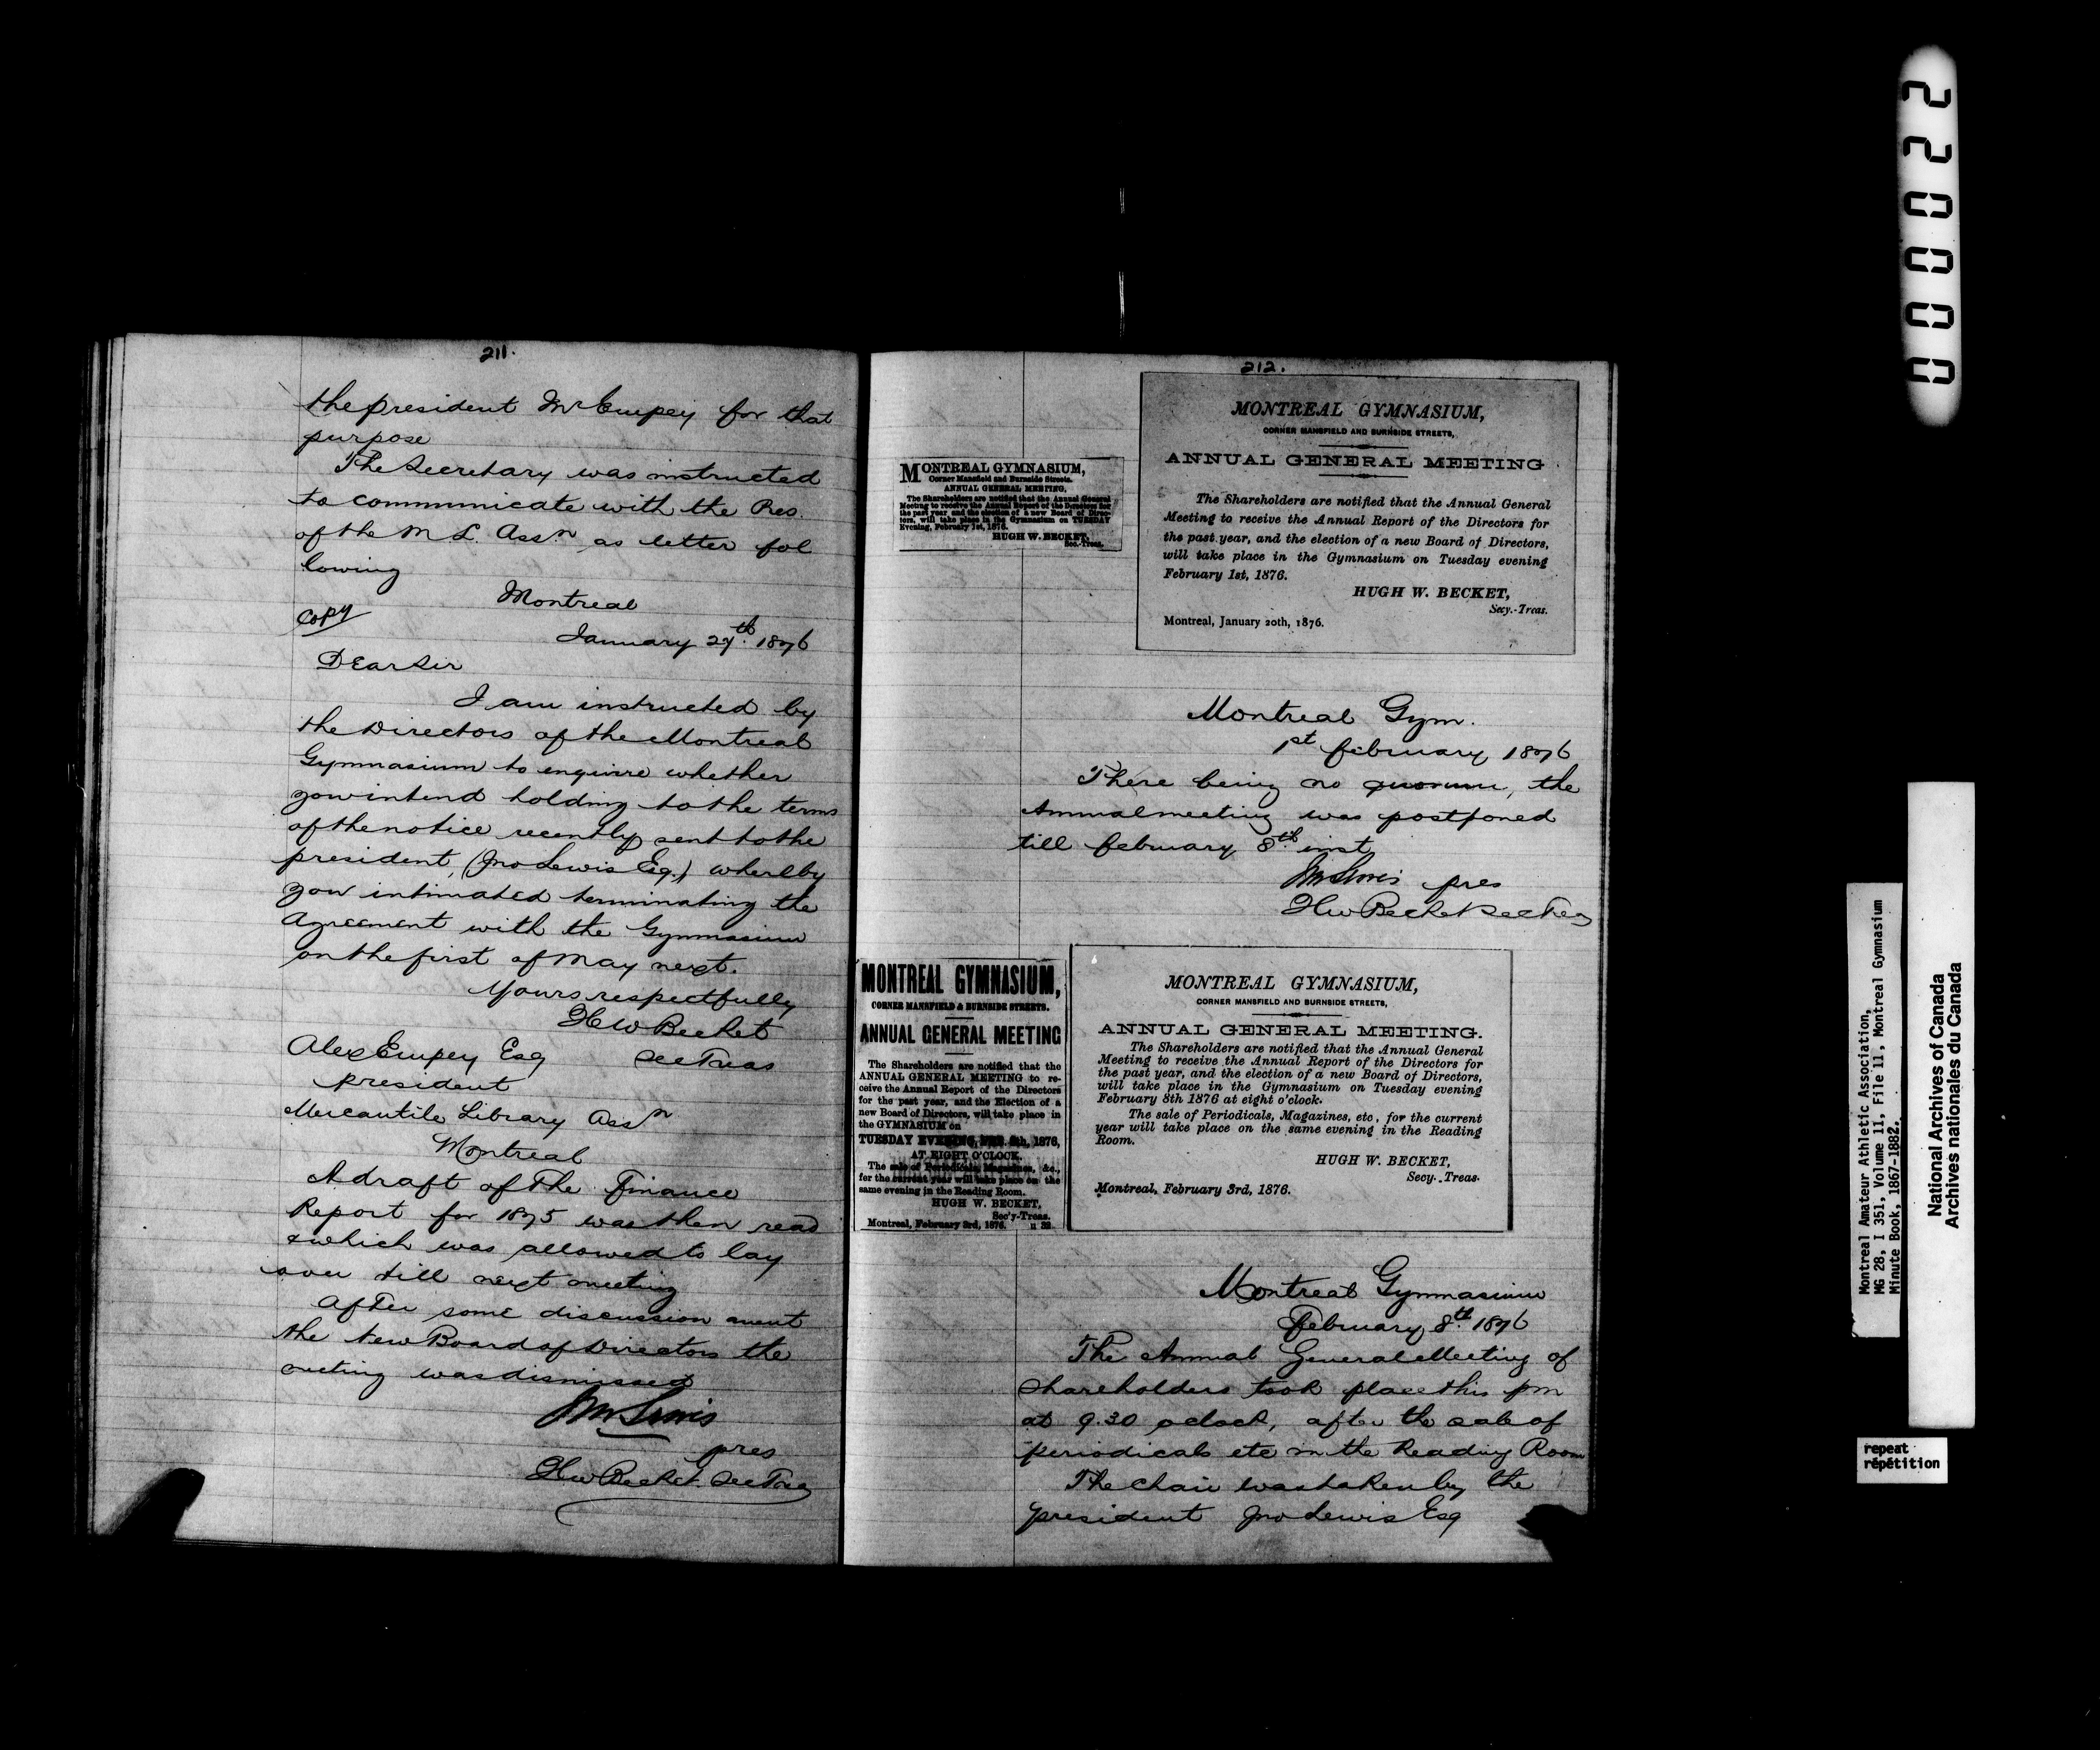 211.
the president Mr Empey for that
purpose
The Secretary was instructed
to communicate with the Pres.
of the M L. Assn as letter fol
lowing
Montreal
Copy
January 27th 1876
Dear Sir
I am instructed by
the Directors of the Montreal
Gymnasium to enquire whether
you intend holding to the terms
of the notice recently sent to the
president, (Jno Lewis Esq.) whereby
you intimated terminating the
Agreement with the Gymnasium
on the first of May next.
Yours respectfully
H W Becket
Alex Empey Esq Sec Treas
president
Mercantile Library Assn
Montreal
A draft of The Finance
Report for 1875 was then read
& which was allowed to lay
over till next meeting
After some discussion anent
the New Board of Directors the
meeting was dismissed
Jno Lewis
pres
H W Becket Sec Treas
212.
MONTREAL GYMNASIUM,
Corner Mansfield and Burnside Streets.
ANNUAL GENERAL MEETING.
The Shareholders are notified that the Annual General
Meeting to receive the Annual Report of the Directors for
the past year, and the election of a new Board of Direc-
tors, will take place in the Gymnasium on TUESDAY
Evening, February 1st, 1876.
HUGH W. BECKET,
Sec.-Treas.
MONTREAL GYMNASIUM,
CORNER MANSFIELD AND BURNSIDE STREETS,
ANNUAL GENERAL MEETING
The Shareholders are notified that the Annual General
Meeting to receive the Annual Report of the Directors for
the past year, and the election of a new Board of Directors,
will take place in the Gymnasium on Tuesday evening
February 1st, 1876.
HUGH W. BECKET,
Secy.-Treas.
Montreal, January 20th, 1876.
Montreal Gym.
1st February 1876
There being no quorum, the
Annual meeting was postponed
till February 8th inst
Jno Lewis pres
H W Becket Sec Treas
MONTREAL GYMNASIUM,
CORNER MANSFIELD & BURNSIDE STREETS.
ANNUAL GENERAL MEETING
The Shareholders are notified that the
ANNUAL GENERAL MEETING to re-
ceive the Annual Report of the Directors
for the past year, and the Election of a
new Board of Directors, will take place in
the GYMNASIUM on
TUESDAY EVENING, FEB. 8th, 1876,
AT EIGHT O'CLOCK.
The sale of Periodicals, Magazines, &c.,
for the current year will take place on the
same evening in the Reading Room.
HUGH W. BECKET,
Sec'y-Treas.
Montreal, February 3rd, 1876. u 32
MONTREAL GYMNASIUM,
CORNER MANSFIELD AND BURNSIDE STREETS,
ANNUAL GENERAL MEETING.
The Shareholders are notified that the Annual General
Meeting to receive the Annual Report of the Directors for
the past year, and the election of a new Board of Directors,
will take place in the Gymnasium on Tuesday evening
February 8th 1876 at eight o'clock.
The sale of Periodicals, Magazines, etc, for the current
year will take place on the same evening in the Reading
Room.
HUGH W. BECKET,
Secy. Treas.
Montreal, February 3rd, 1876.
Montreal Gymnasium
February 8th 1876
The Annual General Meeting of
Shareholders took place this pm
at 9.30 oclock, after the sale of
periodicals etc in the Reading Room
The chair was taken by the
president Jno Lewis Esq
000022
Montreal Amateur Athletic Association,
MG 28, I 351, Volume 11, File 11, Montreal Gymnasium
Minute Book, 1867-1882.
National Archives of Canada
Archives nationales du Canada
repeat
répétition